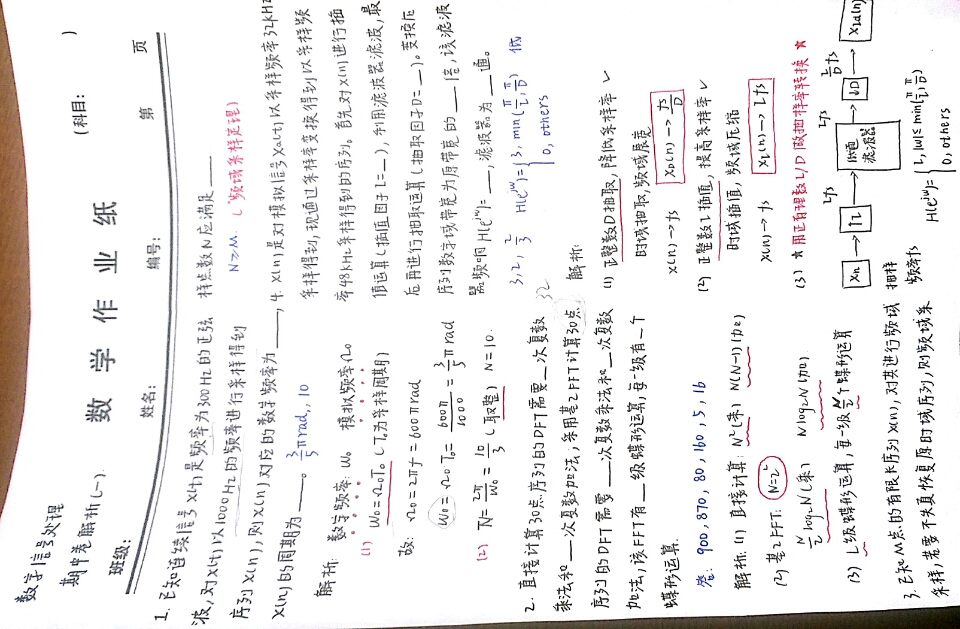 数字信号处理
期中卷解析(一).
数 学 作 业 纸
(科目:          )
班级:          姓名:          编号:          第     页
1. 已知连续信号 x(t)是频率为300Hz的正弦
波, 对x(t)以1000Hz的频率进行采样得到
序列x(n), 则x(n)对应的数字频率为____,
x(n)的周期为____。 3/5πrad, , 10
解析: 数字频率: ω0   模拟频率Ω0
(1) ω0=Ω0T0 (T0为采样周期)
故: Ω0=2πf=600πrad
ω0=Ω0T0=600π/1000=3/5πrad
(2) N=2π/ω0=10/3 (取整) N=10
2. 直接计算30点序列的DFT需要__次复数
乘法和__次复数加法; 采用基2FFT计算30点 32
序列的DFT需__次复数乘法和__次复数
加法, 该FFT有__级蝶形运算, 每一级有__个
蝶形运算.
答: 900, 870, 80, 160, 5, 16
解析: (1) 直接计算: N²(乘) N(N-1)(加)
(2) 基2FFT: N=2^L
N/2log2N(乘)   Nlog2N(加)
(3) L级蝶形运算, 每一级N/2个蝶形运算
3. 已知M点的有限长序列x(n), 对其进行频域
采样, 若要不失真恢复原时域序列, 则频域采
样点数N应满足____
N≥M. (频域采样定理)
4. x(n)是对模拟信号xa(t)以采样频率32kHz
采样得到, 现通过采样率变换得到以采样频
率48kHz采样得到的序列。首先对x(n)进行插
值运算(插值因子I=__), 利用滤波器滤波, 最
后再进行抽取运算(抽取因子D=__)。变换后
序列数字域带宽为原带宽的__倍, 该滤波
器频响H(e^jω)=__, 滤波器为__通。
3, 2, 2/3   H(e^jω)={3, min(π/I, π/D)   低
0, others
解析:
(1) 正整数D抽取, 降低采样率↓
时域抽取, 频域展宽
x(n)→fs   xD(n)→fs/D
(2) 正整数I插值, 提高采样率↙
时域插值, 频域压缩
x(n)→fs   xI(n)→Ifs
(3) ★用正有理数I/D做抽样率转换★
Xn → ↑I → 低通滤波器 → ↓D → XId(n)
抽样频率fs   Ifs   Ifs   I/D fs
H(e^jω)={I, |ω|≤min(π/I, π/D)
0, others